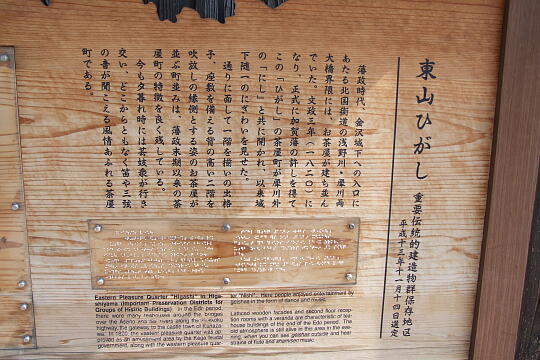 東山ひがし
重要伝統的建造物群保存地区
平成十三年十一月十四日選定
藩政時代、金沢城下への入口に
あたる北国街道の浅野川・犀川両
大橋界隈には、お茶屋が建ち並ん
でいた。文政三年(一八二〇)に
なり、正式に加賀藩の許しを得て
この「ひがし」の茶屋町が犀川外
の「にし」と共に開かれ、以来城
下随一のにぎわいを見せた。
通りに面して一階を揃いの出格
子、座敷を備える背の高い二階を
吹放しの縁側とする姿のお茶屋が
並ぶ町並みは、藩政末期以来の茶
屋町の特徴を良く残している。
今も夕暮れ時には芸妓衆が行き
交い、どこからともなく笛や三弦
の音が聞こえる風情あふれる茶屋
町である。
Eastern Pleasure Quarter "Higashi" in Higa-
shiyama (Important Preservation Districts for
Groups of Historic Buildings) In the Edo period,
there were many teahouses around the bridges
over the Asano and Sai rivers along the Hokuriku
highway, the gateway to the castle town of Kanaza-
wa. In 1820, the eastern pleasure quarter was ap-
proved as an amusement area by the Kaga feudal
government, along with the western pleasure quar-
ter "Nishi". Here people enjoyed entertainment by
geishas in the form of dance and music.
Latticed wooden facades and second floor recep-
tion rooms with a veranda are characteristic of tea-
house buildings of the end of the Edo period. The
old atmosphere is still alive in this area in the eve-
ning, when you can see geishas outside and hear
strains of flute and shamisen music.